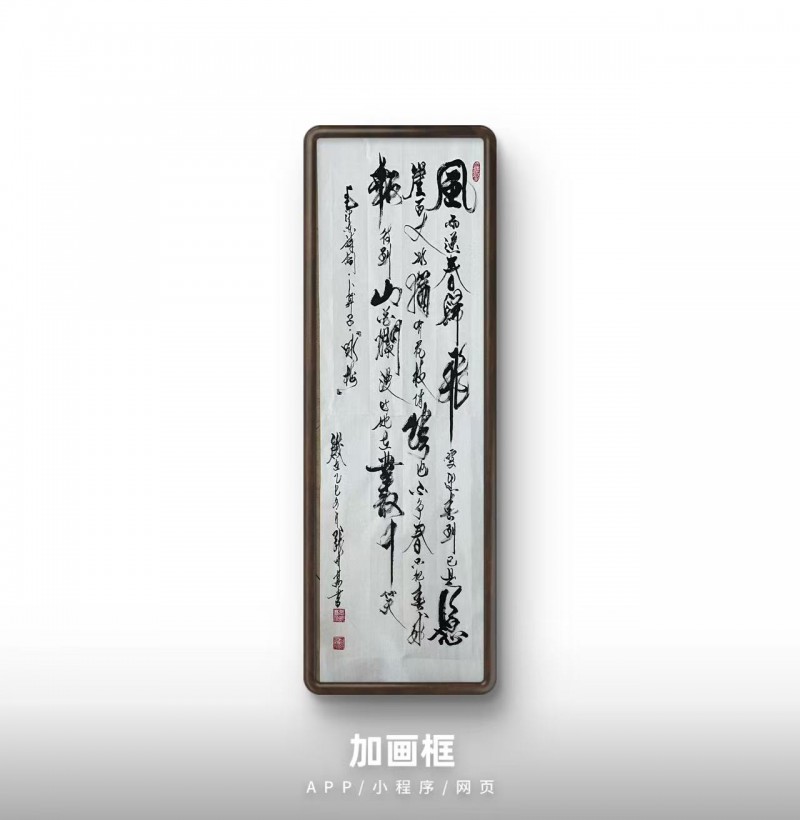 風雨送春歸飛雪迎春到已是懸
崖百丈冰猶有花枝俏俏也不争春只把春來
報待到山花爛漫时她在叢中笑
毛主席詩詞·卜算子·咏梅
歲在乙巳年月張書
加画框
APP/小程序/网页